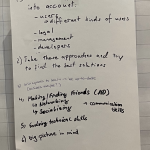 into account:
- users
→ different kinds of users
- legal
- management
- developers
2) Take these approaches and try
to find the best solutions
4) Making/finding friends (AD)
↳ Networking
↳ Socializing
→ communication
skills
5) Evolving technical skills
6) Big picture in mind